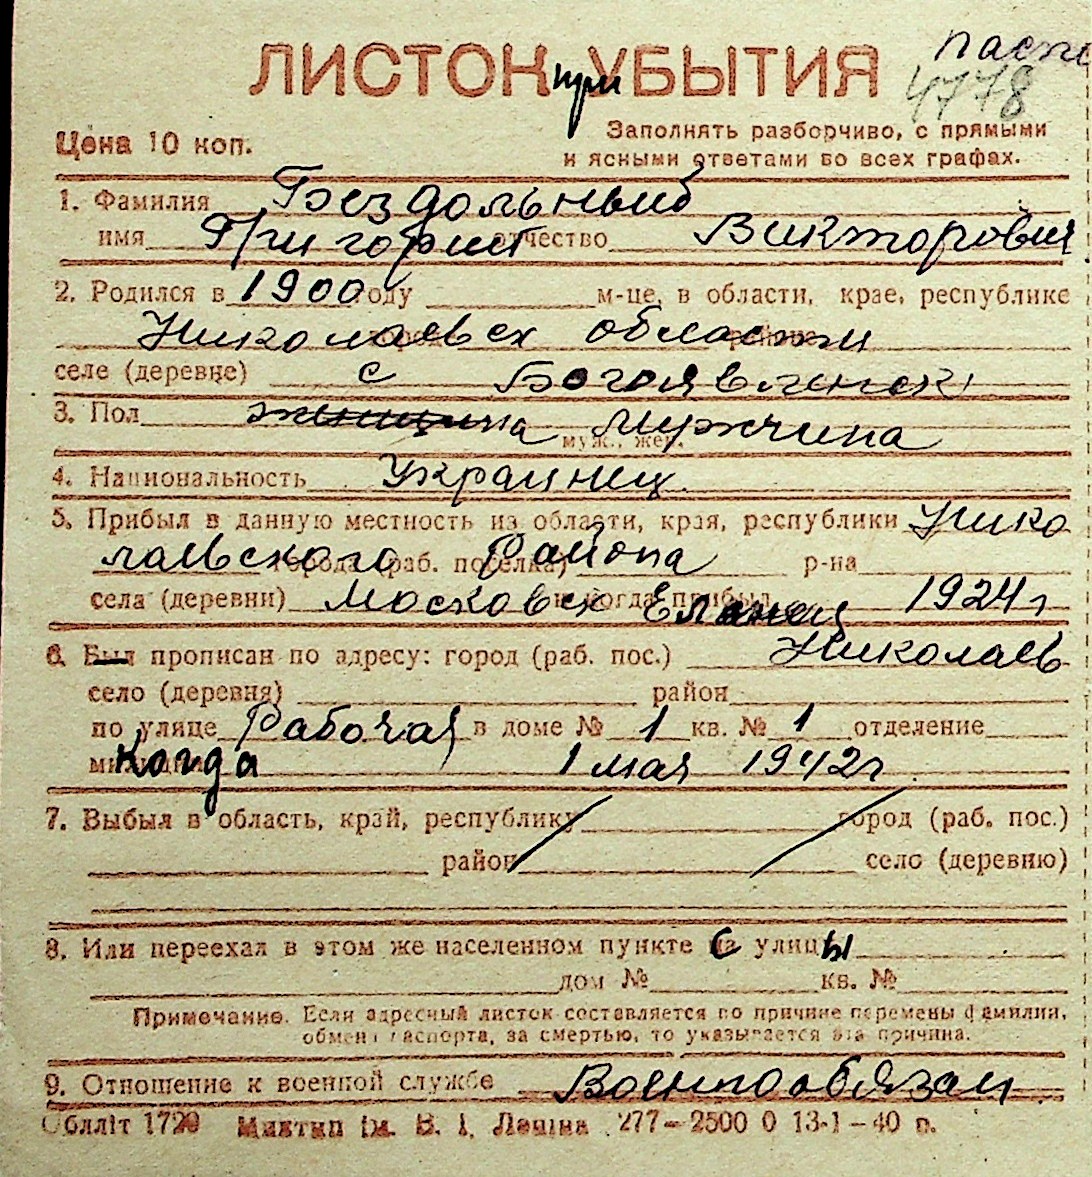 паспо
ЛИСТОК при УБЫТИЯ
4778
Цена 10 коп.
Заполнять разборчиво, с прямыми
и ясными ответами во всех графах.
1. Фамилия Бездольный
имя Григорий отчество Викторович
2. Родился в 1900 году м-це, в области, крае, республике
Николаевск области
селе (деревне) с Богоявленск
3. Пол женщина Мужчина
муж., жен.
4. Национальность Украинец
5. Прибыл в данную местность из области, края, республики Нико
лаевского города (раб. поселка) Района р-на
села (деревни) Московск и когда прибыл Еланец 1924 г
6. Был прописан по адресу: город (раб. пос.) Николаев
село (деревня) район
по улице Рабочая в доме № 1 кв. № 1 отделение
милиции Когда 1 мая 1942 г.
7. Выбыл в область, край, республику город (раб. пос.)
район село (деревню)
8. Или переехал в этом же населенном пункте с улицы
дом № кв. №
Примечание. Если адресный листок составляется по причине перемены фамилии,
обмена паспорта, за смертью, то указывается эта причина.
9. Отношение к военной службе Военнообязан
Обллiт 1729 Миктип iм. В. I. Ленiна 277–2500 0 13-1–40 п.